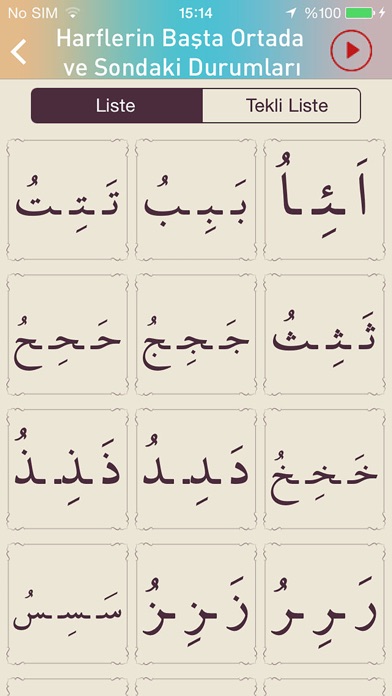 No SIM 15:14 %100
Harflerin Başta Ortada
ve Sondaki Durumları
Liste Tekli Liste
اَـئِـاُ بَـبِـبُ تَـتِـتُ
ثَـثِـثُ جَـجِـجُ حَـحِـحُ
خَـخِـخُ دَـدِـدُ ذَـذِـذُ
رَـرِـرُ زَـزِـزُ سَـسِـسُ